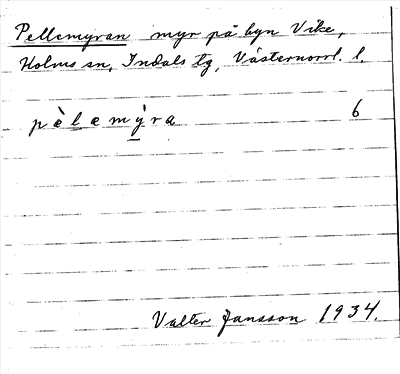 Pellemyran myr på byn Vike,
Holms sn, Indals tg, Västernorrl. l.
pèlemỳra 6
Valter Jansson 1934.